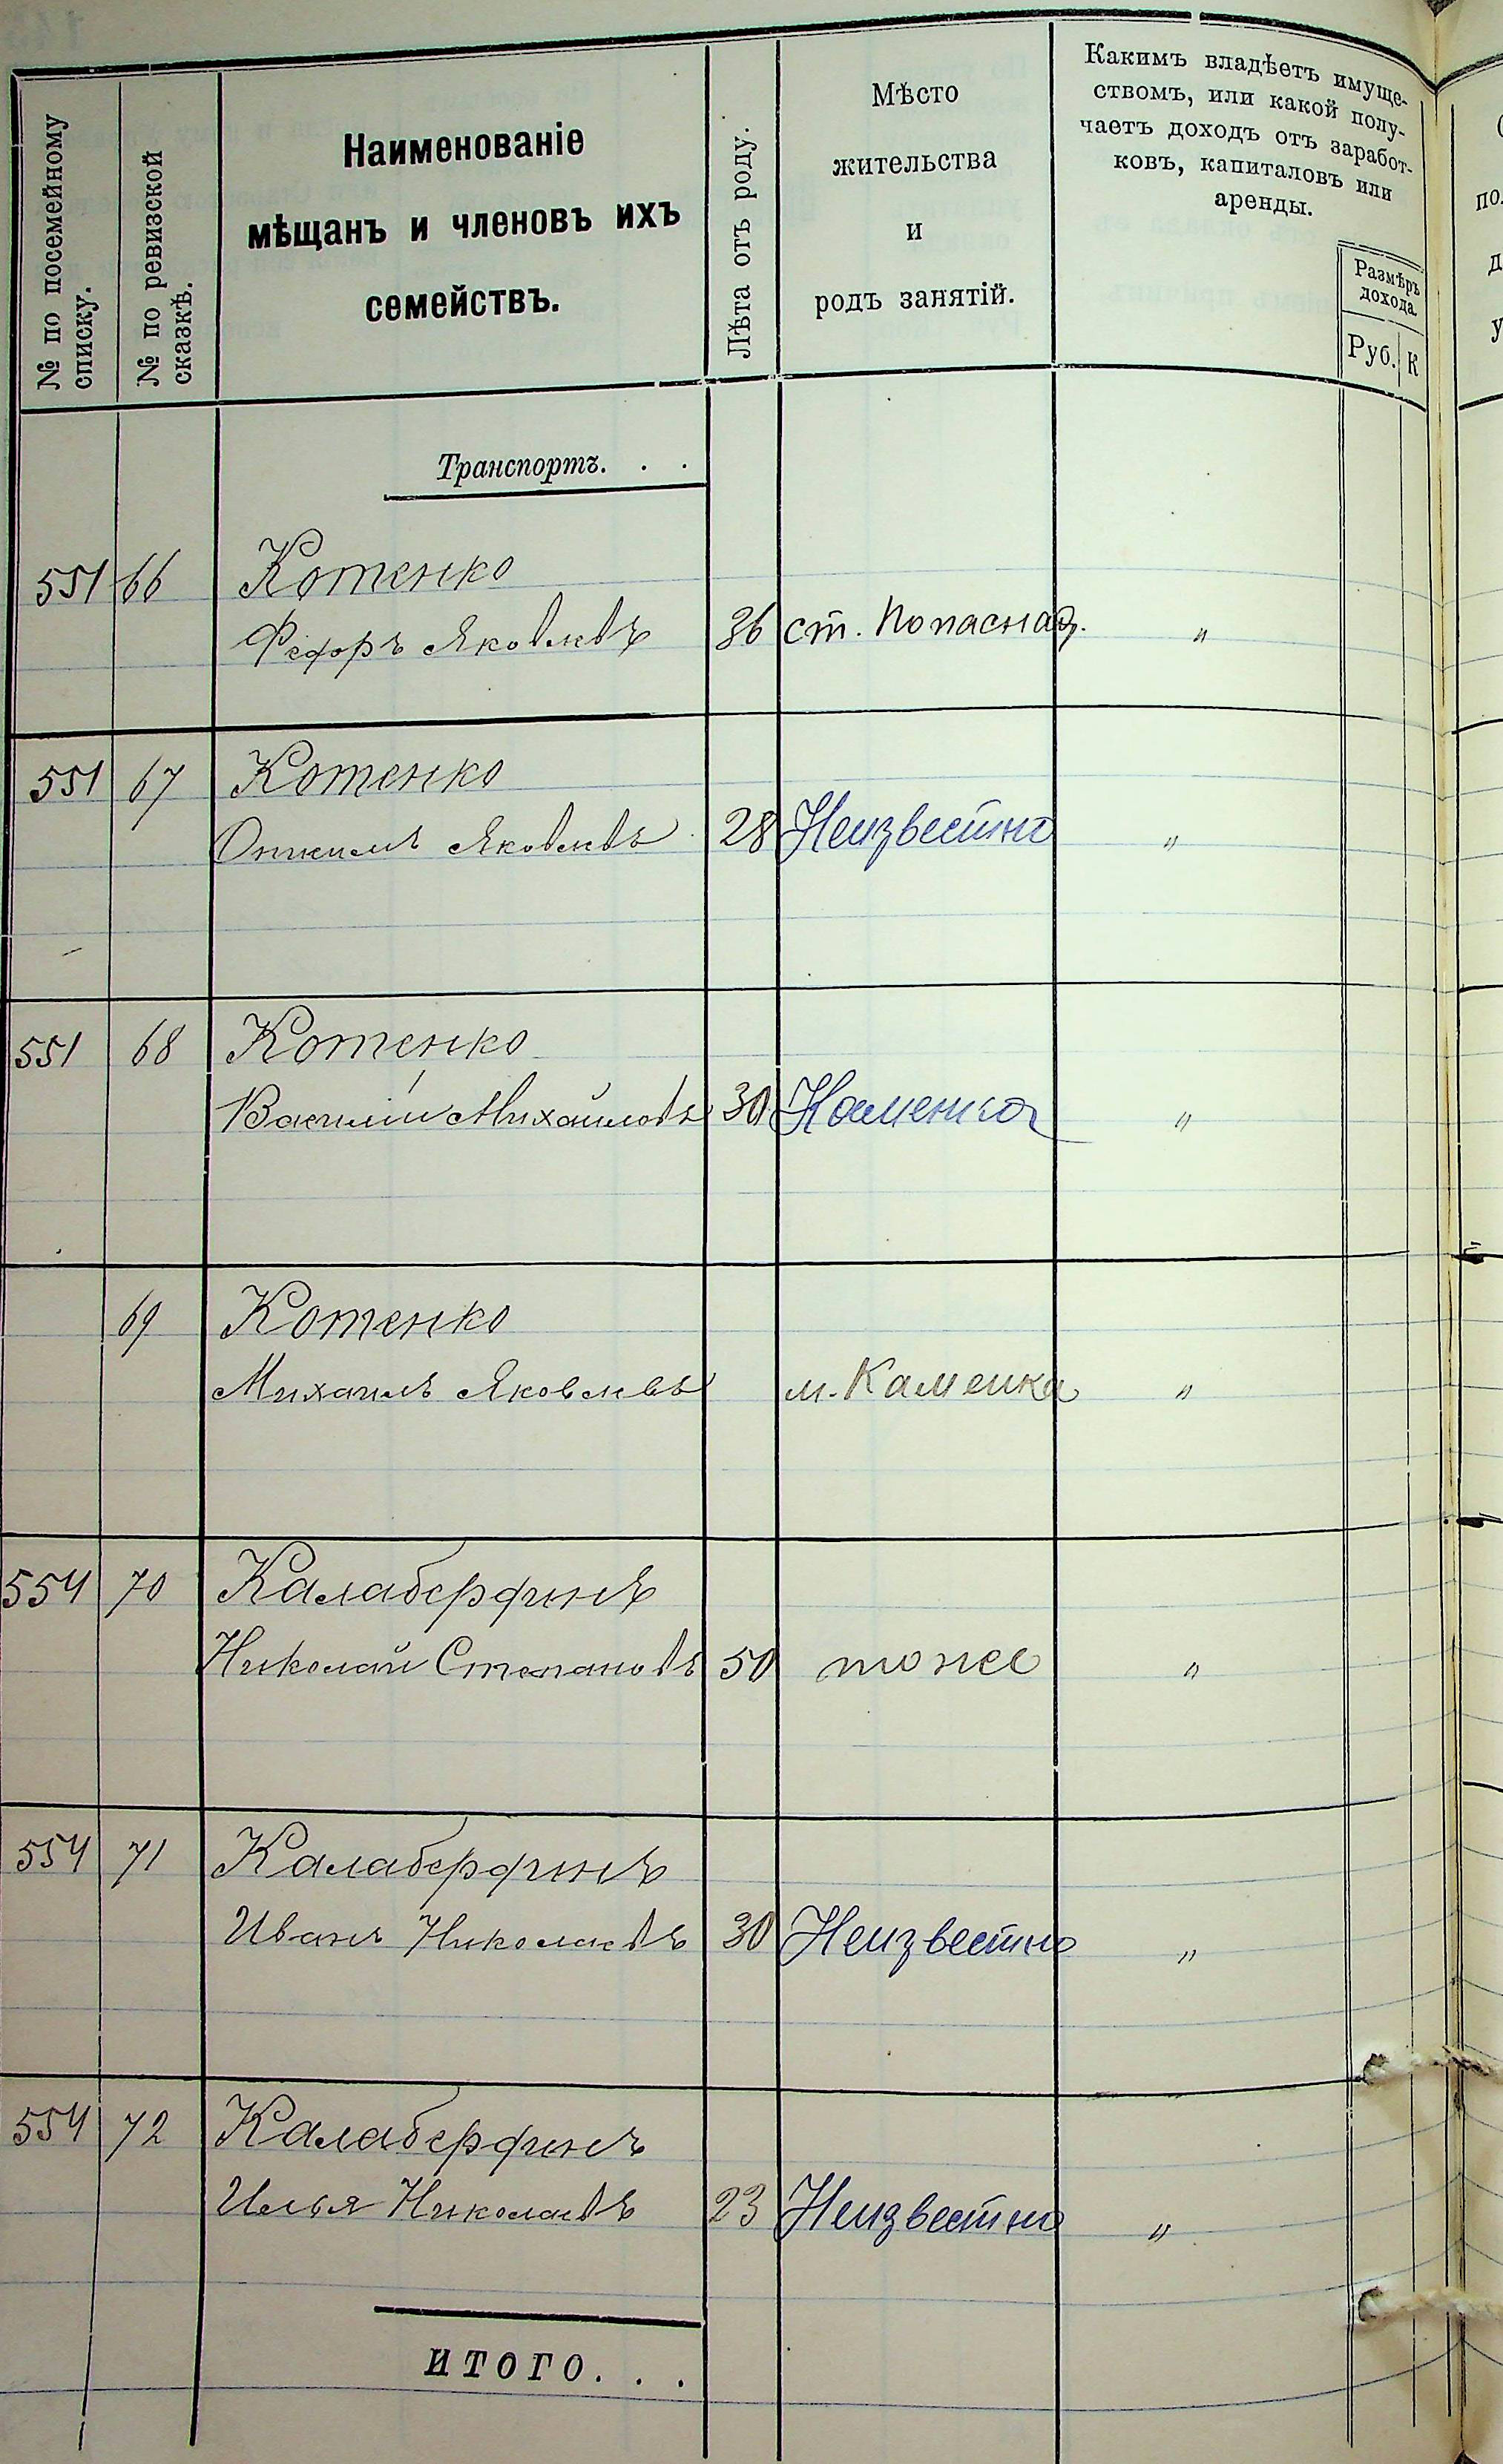 № по посемейному
списку.
№ по ревизской
сказкѣ.
Наименованіе
мѣщанъ и членовъ ихъ
семействъ.
Лѣта отъ роду.
Мѣсто
жительства
и
родъ занятій.
Какимъ владѣетъ имуще-
ствомъ, или какой полу-
чаетъ доходъ отъ заработ-
ковъ, капиталовъ или
аренды.
Размѣръ
дохода.
Руб. К
Транспортъ. . .
551 66 Котенко
Федоръ Яковлевъ 36 ст. Попасная. "
551 67 Котенко
Яковлевъ 28 Неизвестно "
551 68 Котенко
Василій Михайловъ 30 Каменка "
69 Котенко
Михаилъ Яковлевъ м. Каменка "
554 70 Калаберфинъ
Николай Степановъ 50 тоже "
554 71 Калаберфинъ
Иванъ Николаевъ 30 Неизвестно "
554 72 Калаберфинъ
Илья Николаевъ 23 Неизвестно "
ИТОГО. . .